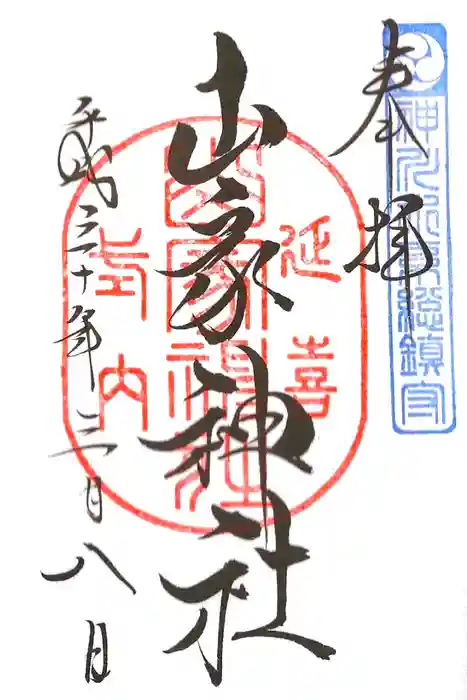 奉拝
神 総鎮守
延喜
山家神社
山家神社
式内
平成三十年三月八日